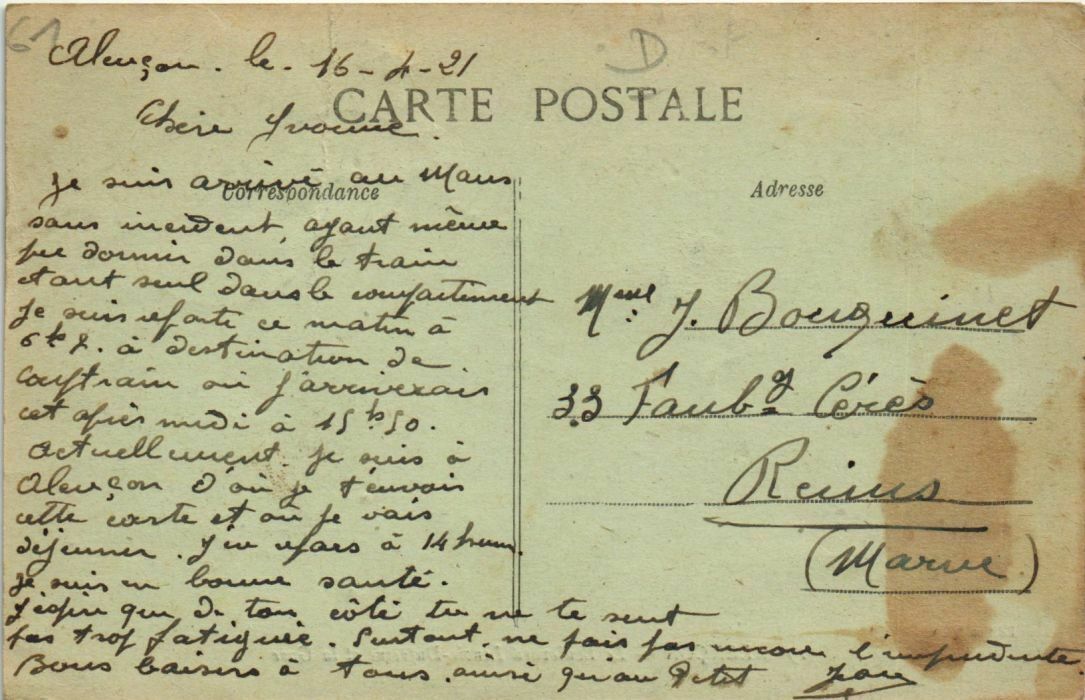 61
D
Alençon. le. 16-4-21
CARTE POSTALE
Chère Yvonne.
Correspondance
Adresse
Je suis arrivé au Mans
sans incident, ayant même
pu dormir dans le train
etant seul dans le compartiment
Je suis reparti ce matin à
à destination de
Couptrain où j'arriverais
cet après midi à 15h50.
Actuellement. je suis à
Alençon d'où je t'envois
cette carte et où je vais
déjeuner. J'en repars à 14 heures.
Je suis en bonne santé.
J'éspère que de ton côté tu ne te sent
pas trop fatiguée. Surtout, ne fais pas encore l'imprudente
Bons baisers à tous ainsi qu'au Petit Jean
Mme: J. Bouquinet
33 Faubg Cérès
Reims
(Marne)